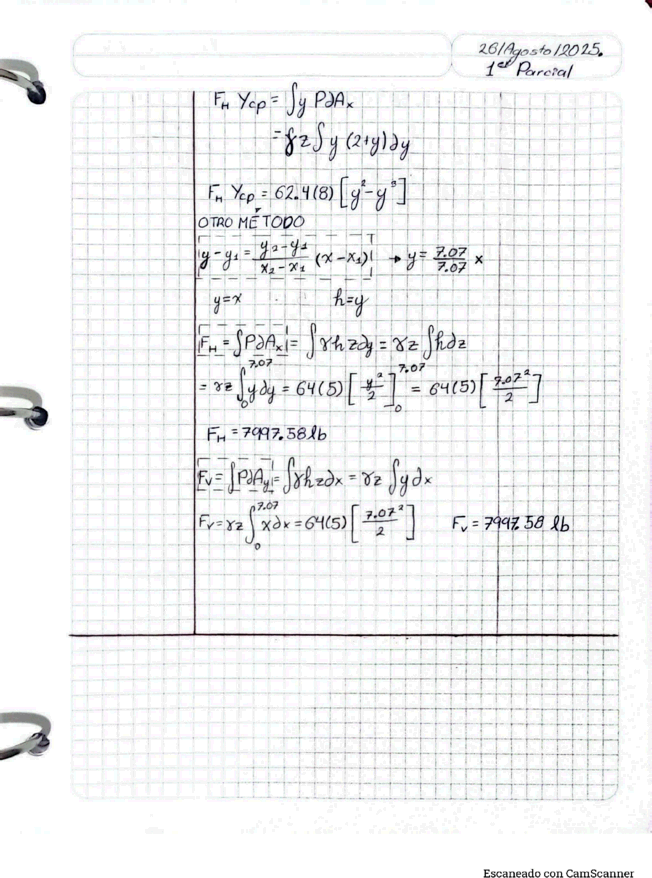 26/Agosto/2025.
1er Parcial
F_H Ycp = ∫y P∂A_x
= γz∫y (2+y)∂y
F_H Ycp = 62.4(8) [y²-y³]
OTRO MÉTODO
y-y₁ = (y₂-y₁)/(x₂-x₁) (x-x₁) → y = 7.07/7.07 x
y=x h=y
F_H = ∫P∂A_x = ∫γhz∂y = γz ∫h∂z
= γz ∫₀^7.07 y∂y = 64(5) [y²/2]₀^7.07 = 64(5) [7.07²/2]
F_H = 7997.58 lb
F_V = ∫P∂A_y = ∫γhz∂x = γz ∫y∂x
F_V = γz ∫₀^7.07 x∂x = 64(5) [7.07²/2] F_V = 7997.58 lb
Escaneado con CamScanner